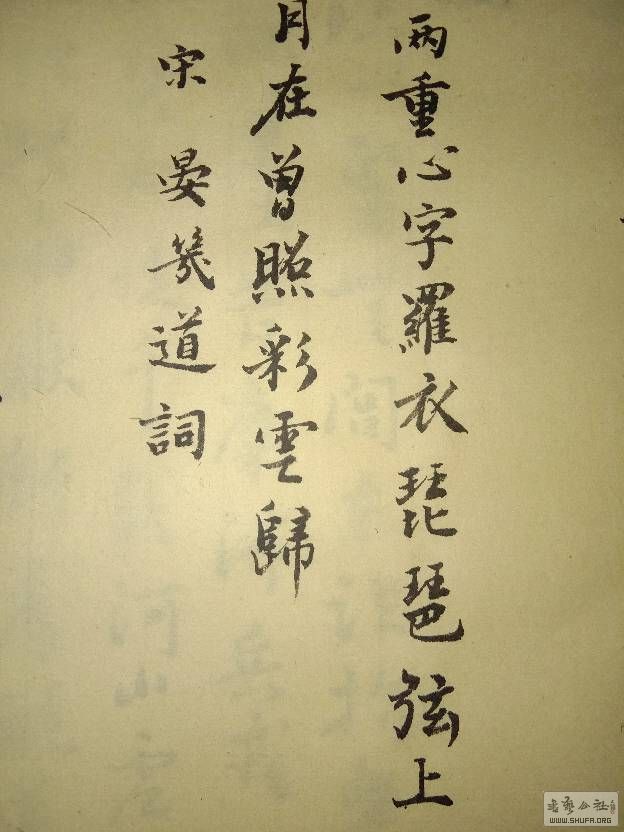 两重心字羅衣琵琶弦上
月在曾照彩雲歸
宋 晏幾道詞
WWW.SHUFA.ORG